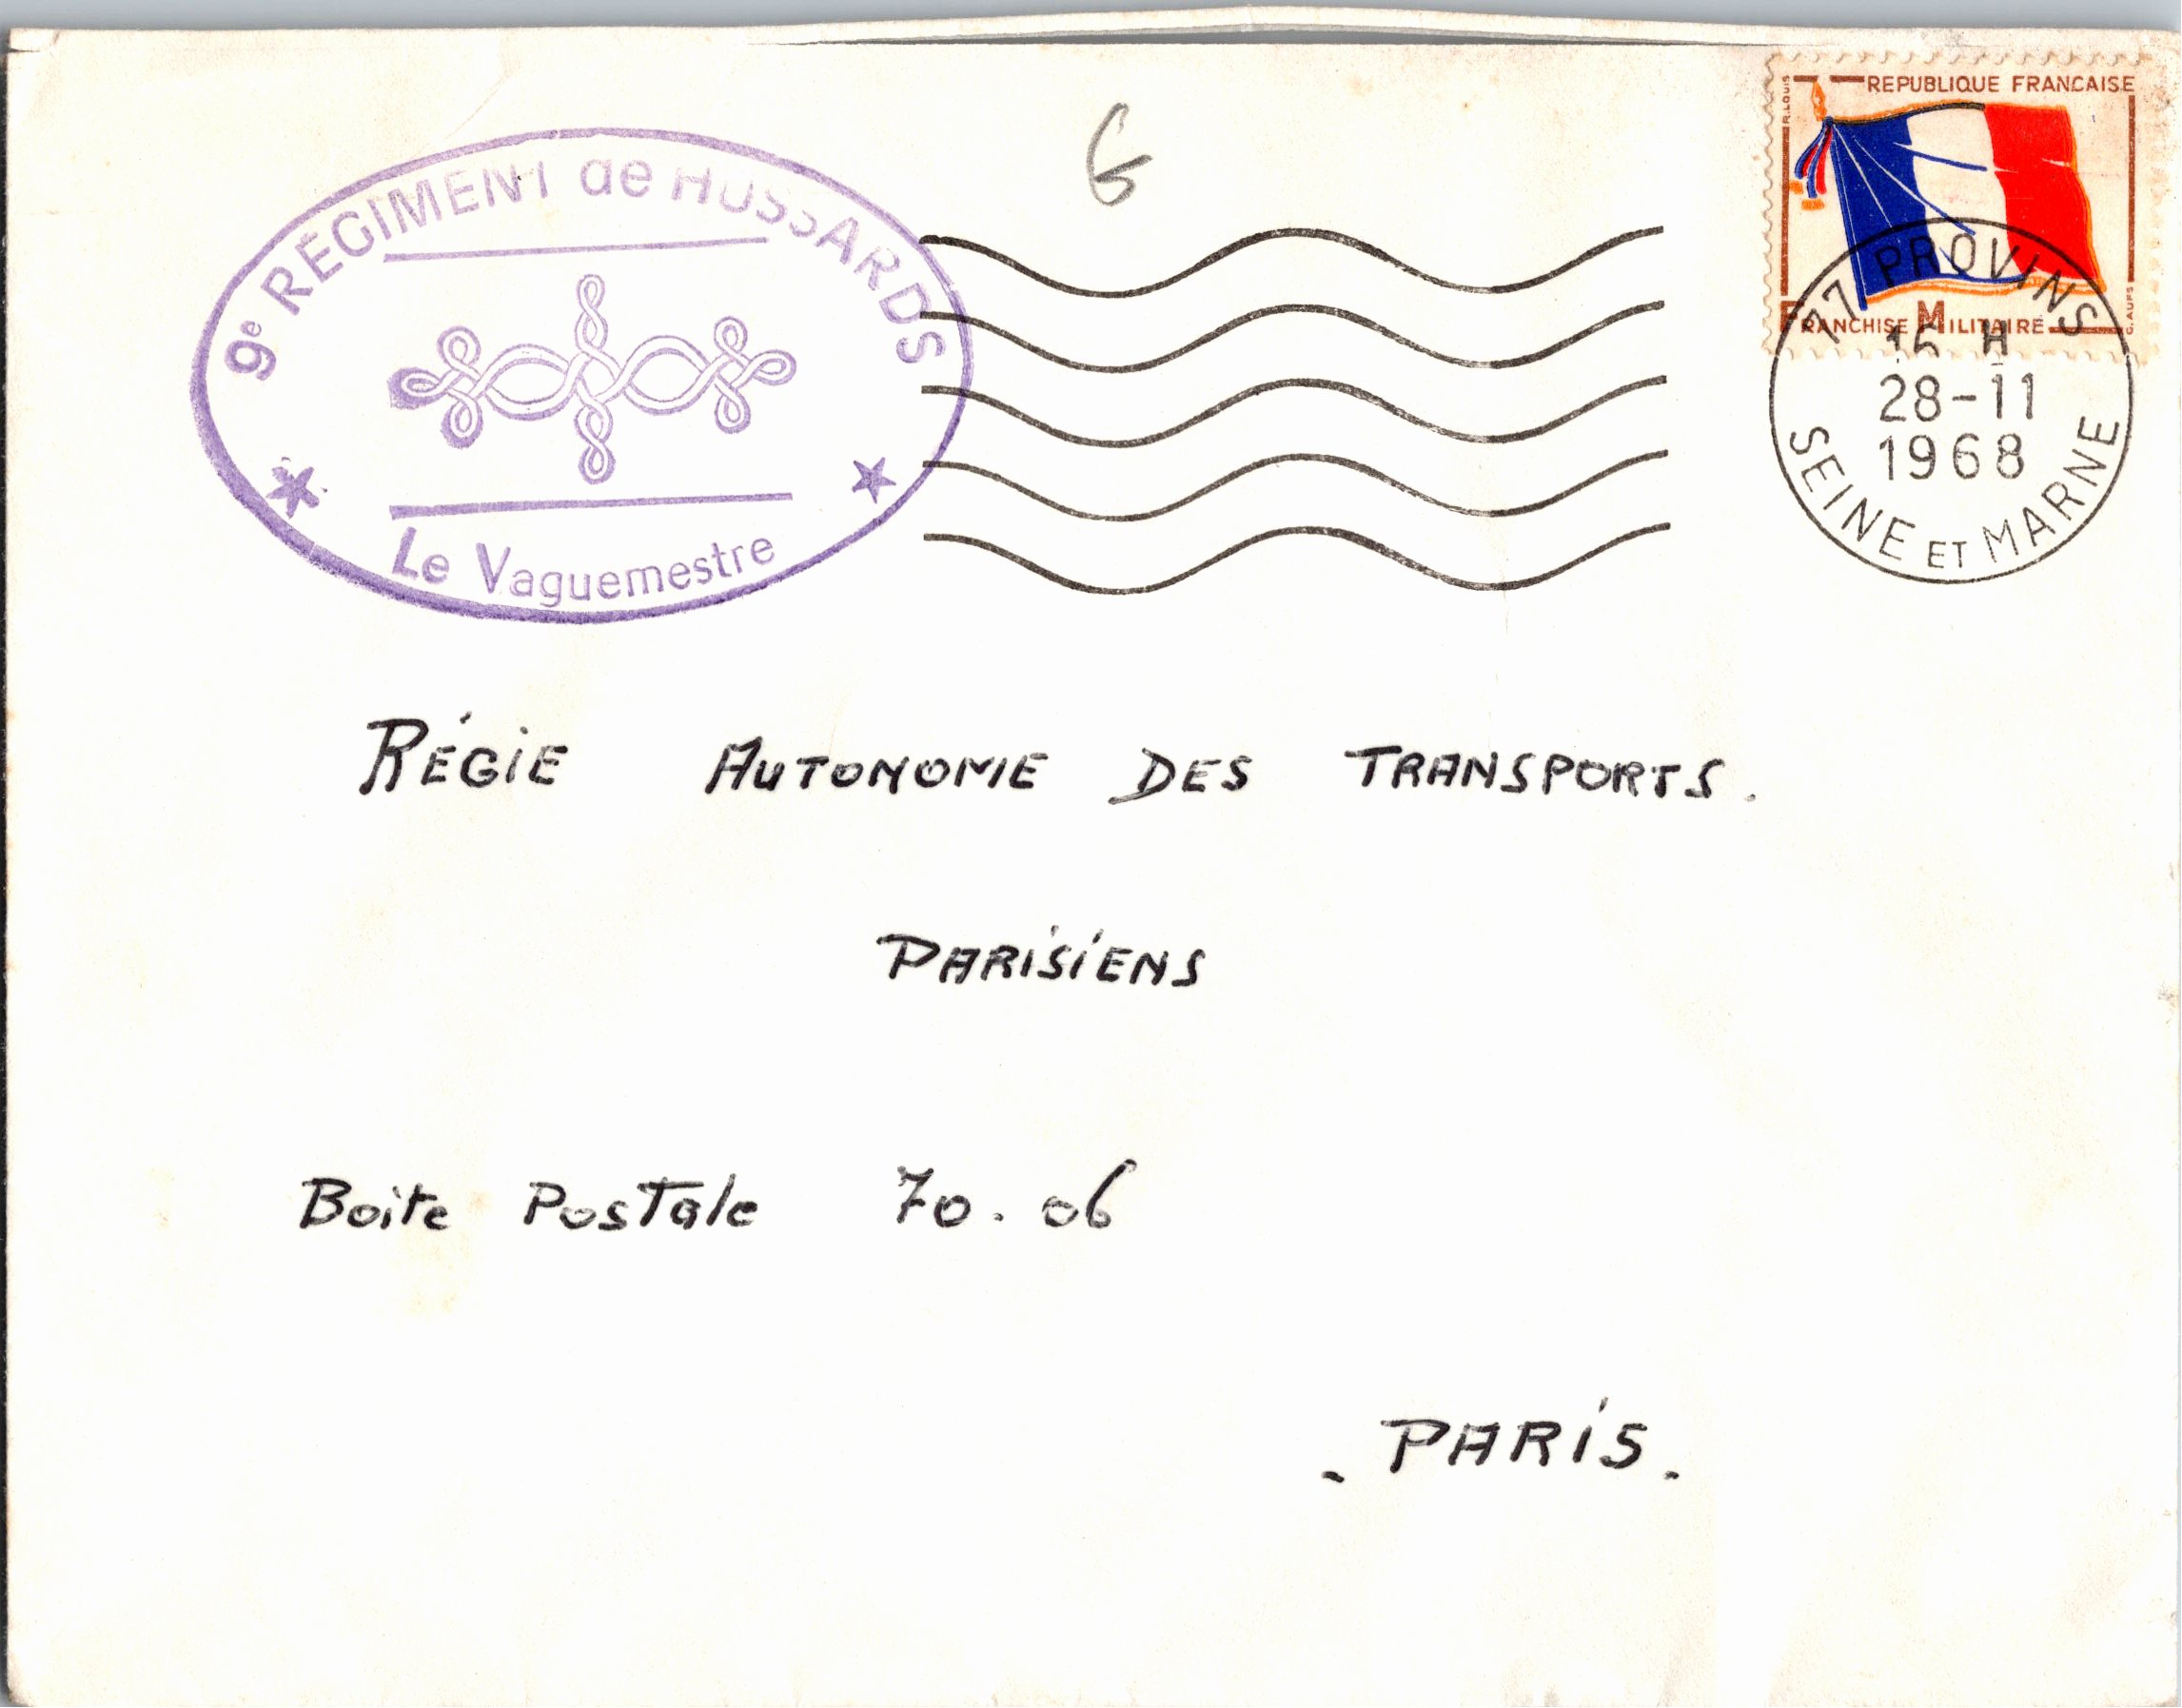 9e RÉGIMENT de HUSSARDS
Le Vaguemestre
G
R.LOUIS
REPUBLIQUE FRANCAISE
FRANCHISE MILITAIRE
G.AUFS
77 PROVINS
16 H
28-11
1968
SEINE ET MARNE
RÉGIE AUTONOME DES TRANSPORTS.
PARISIENS
Boite Postale 70.06
. PARIS.